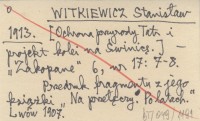 WITKIEWICZ Stanisław
1913. [Ochrona przyrody Tatr i
projekt kolei na Świnicę.] —
„Zakopane" 6, nr 17: 7-8.
Przedruk fragmentu z jego
książki „Na przełęczy. Po latach."
Lwów 1907.